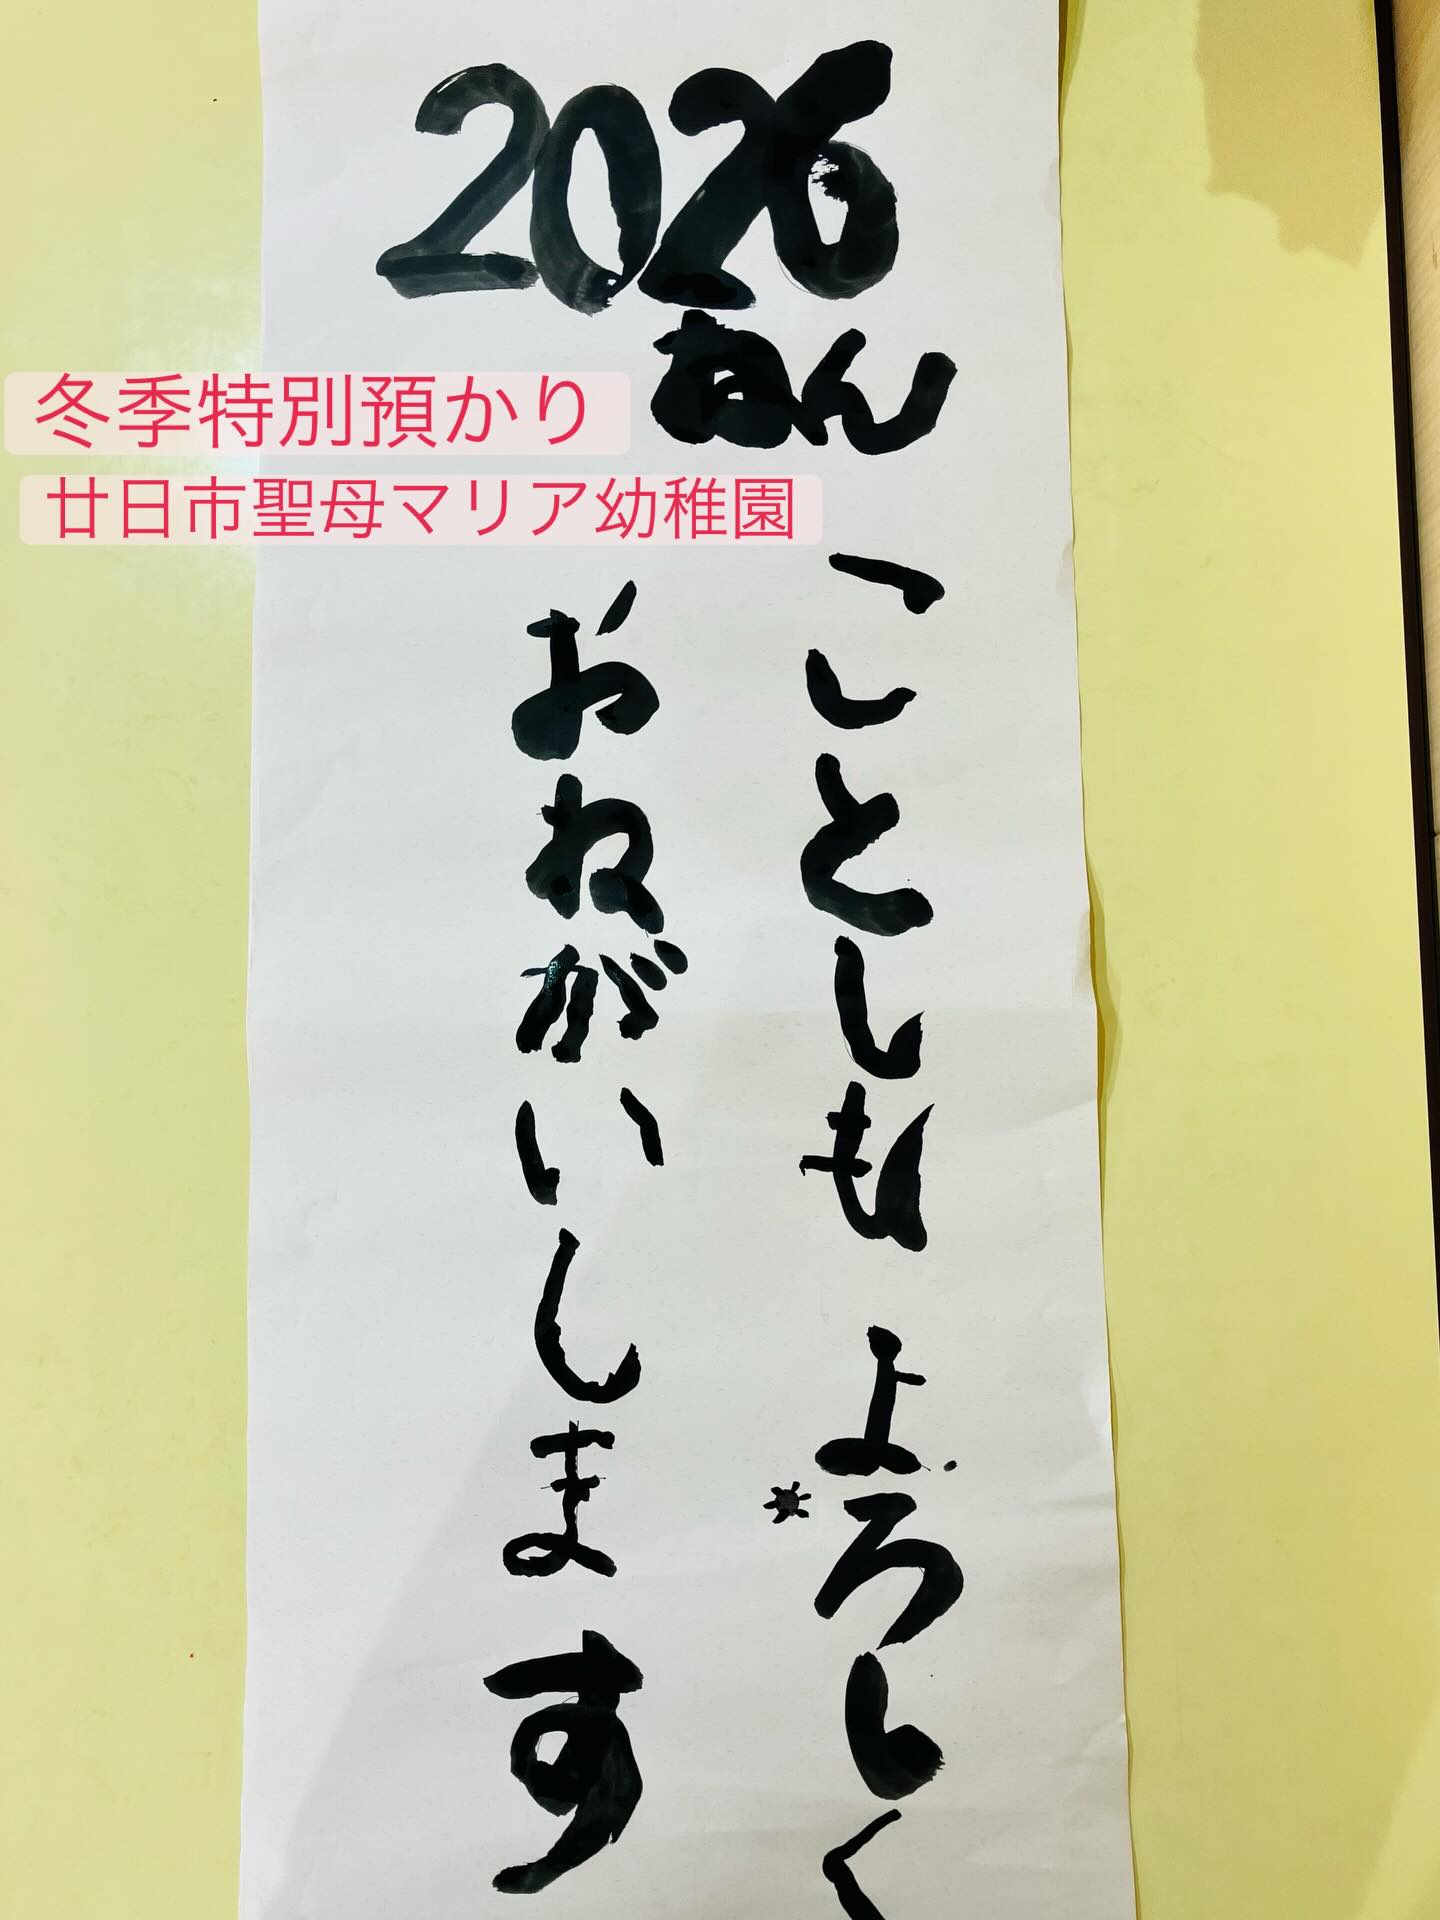 2026
ねん
冬季特別預かり
廿日市聖母マリア幼稚園
ことしも よろしく
おねがいします